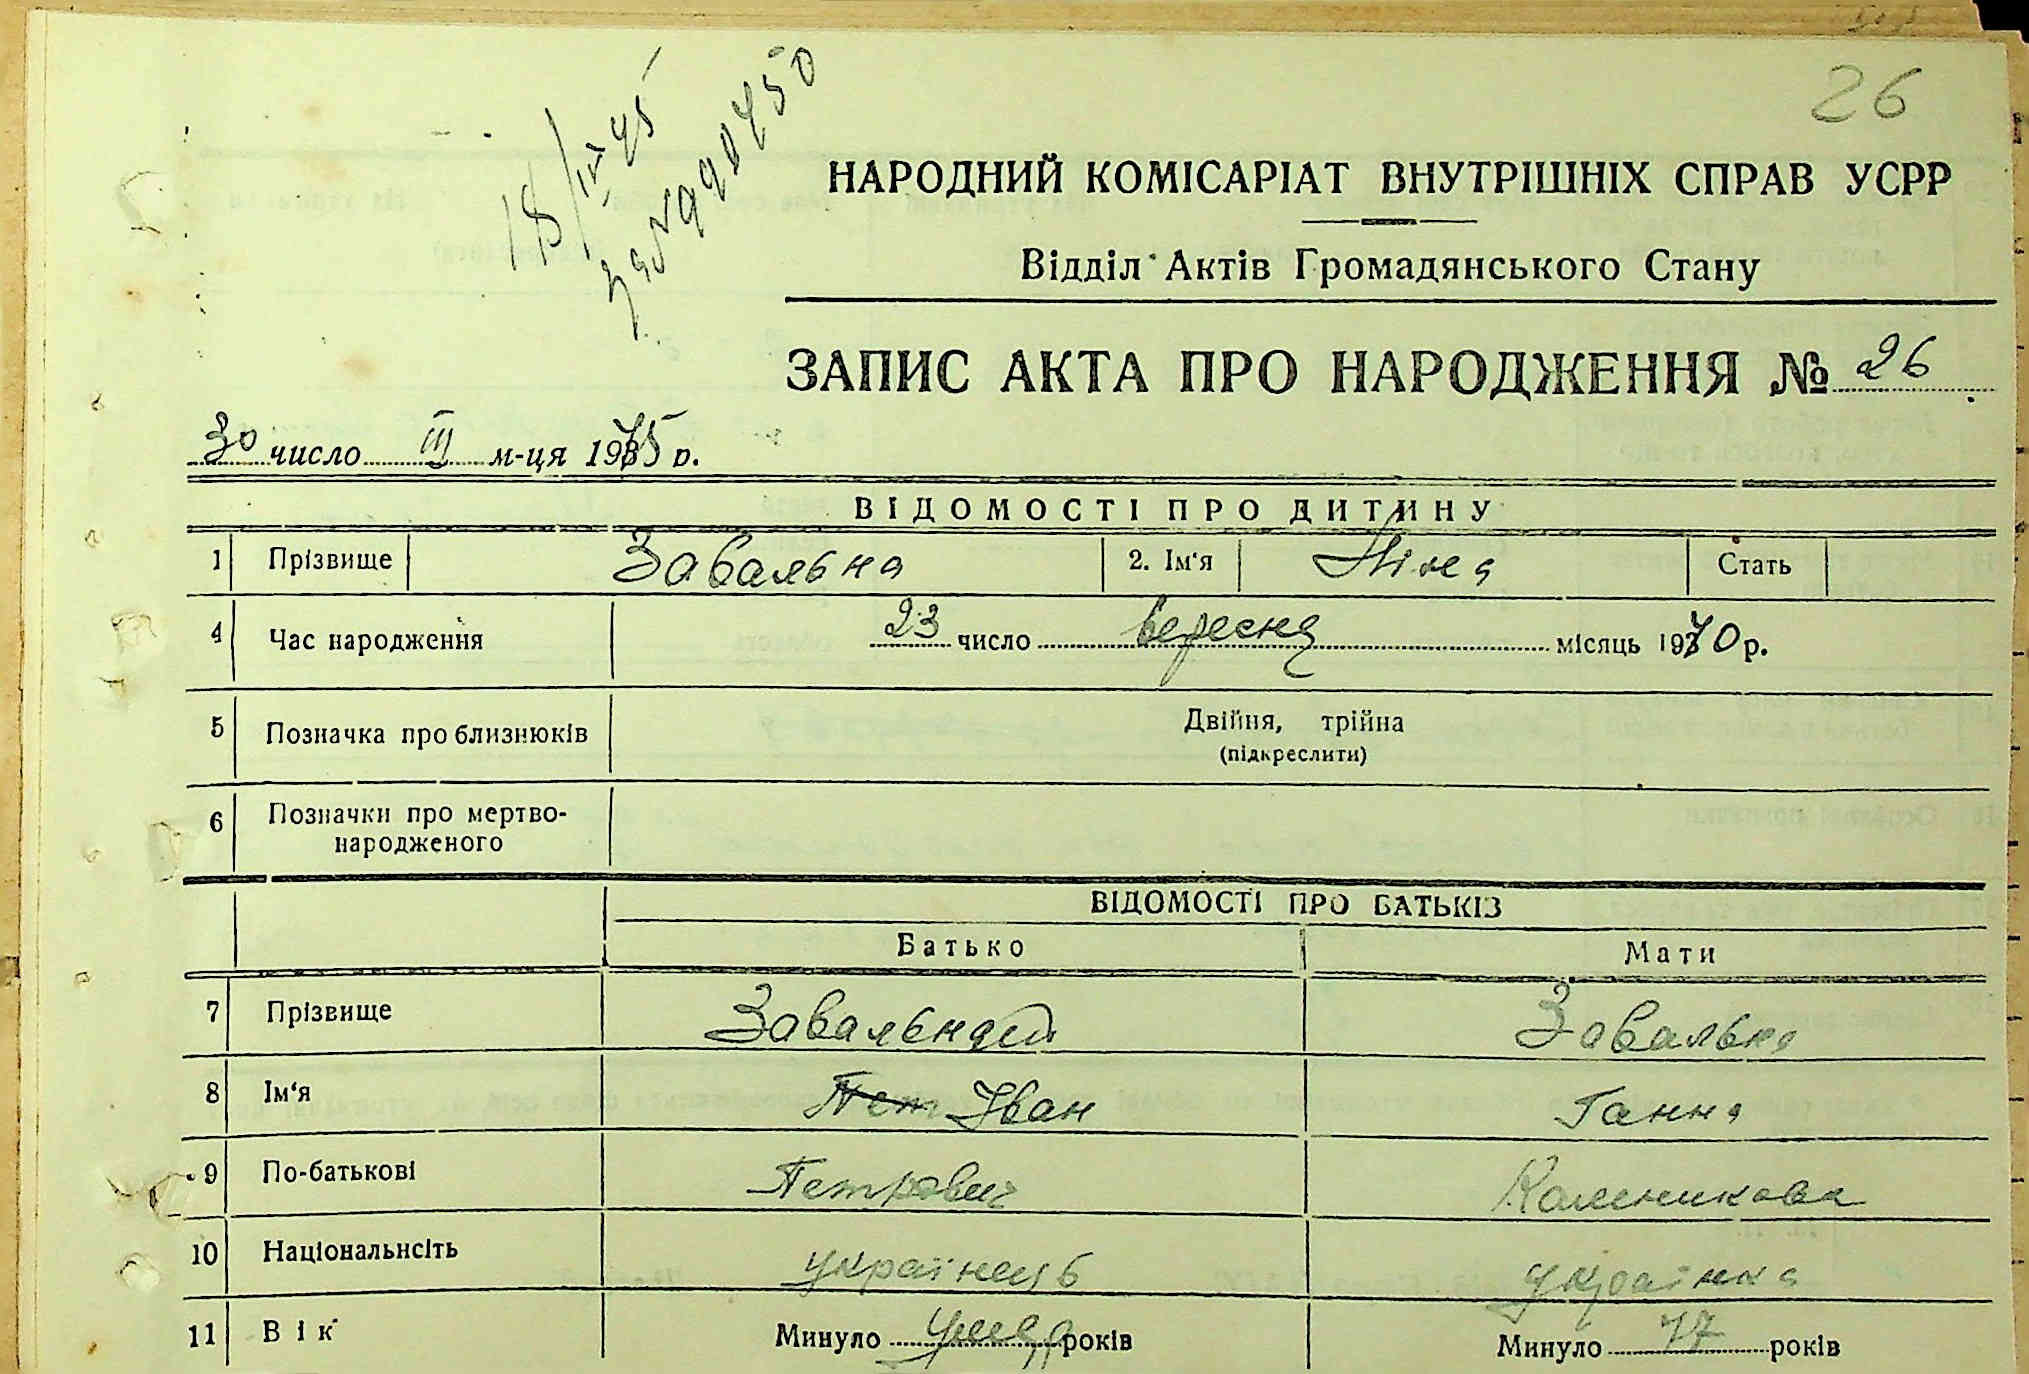 26
18/IV 45
НАРОДНИЙ КОМІСАРІАТ ВНУТРІШНІХ СПРАВ УСРР
Відділ Актів Громадянського Стану
ЗАПИС АКТА ПРО НАРОДЖЕННЯ № 26
30 число III м-ця 1945 р.
ВІДОМОСТІ ПРО ДИТИНУ
1 Прізвище Завальна 2. Ім'я Ніна Стать
4 Час народження 23 число вересня місяць 1930 р.
5 Позначка про близнюків Двійня, трійна
(підкреслити)
6 Позначки про мертво-
народженого
ВІДОМОСТІ ПРО БАТЬКІВ
Батько Мати
7 Прізвище Завальний Завальна
8 Ім'я Пет Іван Ганна
9 По-батькові Петрович Калениковна
10 Національнсіть українець українка
11 Вік Минуло років Минуло років